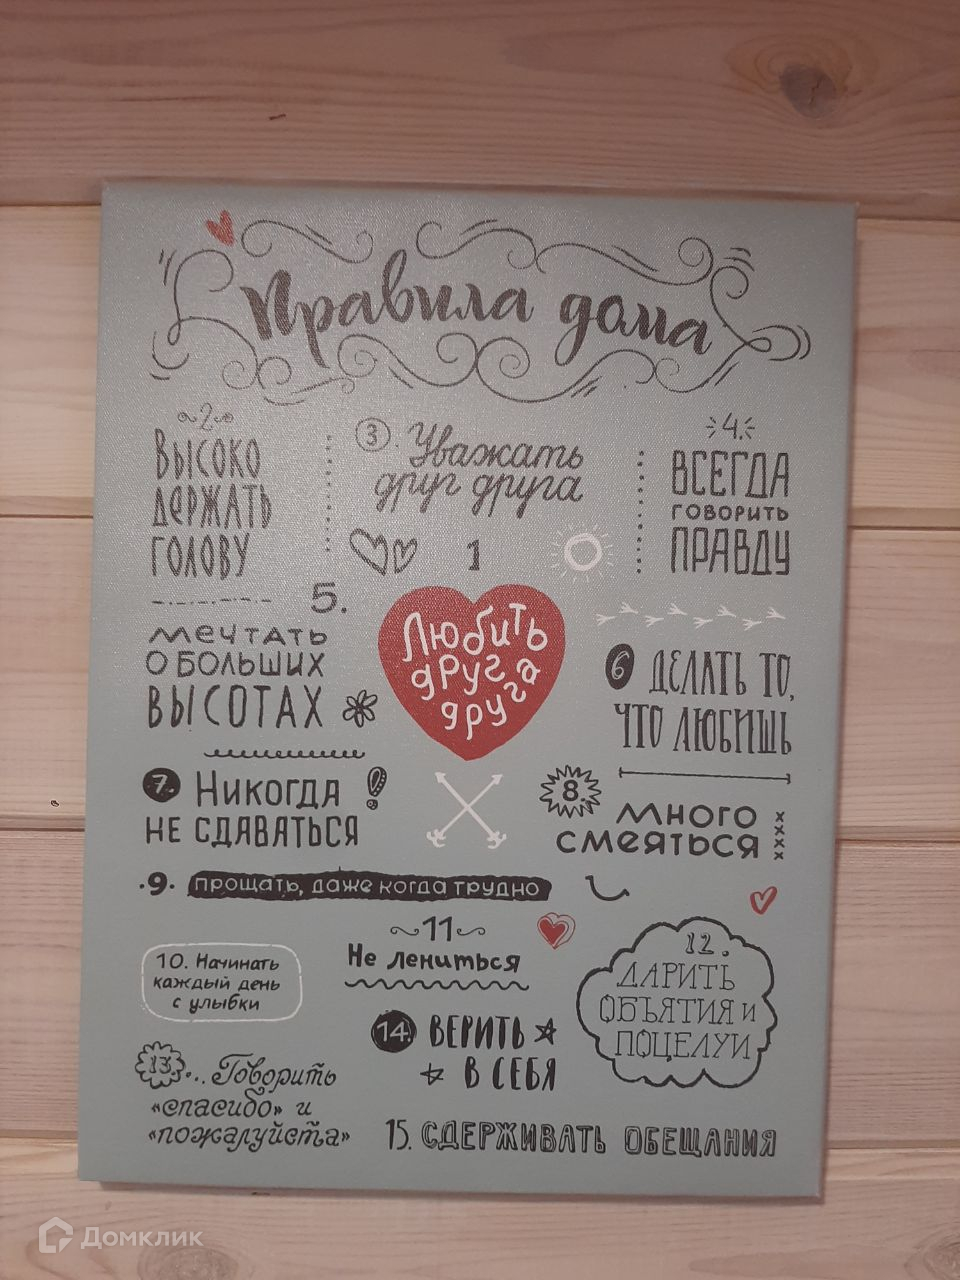 Правила дома
2
ВЫСОКО
ДЕРЖАТЬ
ГОЛОВУ
3. Уважать
друг друга
4.
ВСЕГДА
ГОВОРИТЬ
ПРАВДУ
1
Любить
друг
друга
5.
МЕЧТАТЬ
О БОЛЬШИХ
ВЫСОТАХ
6 ДЕЛАТЬ ТО,
ЧТО ЛЮБИШЬ
7. НИКОГДА
НЕ СДАВАТЬСЯ
8. МНОГО
СМЕЯТЬСЯ
·9· ПРОЩАТЬ, ДАЖЕ КОГДА ТРУДНО
10. Начинать
каждый день
с улыбки
11
Не лениться
12.
ДАРИТЬ
ОБЪЯТИЯ И
ПОЦЕЛУИ
13... Говорить
«спасибо» и
«пожалуйста»
14 ВЕРИТЬ
В СЕБЯ
15. СДЕРЖИВАТЬ ОБЕЩАНИЯ
Домклик